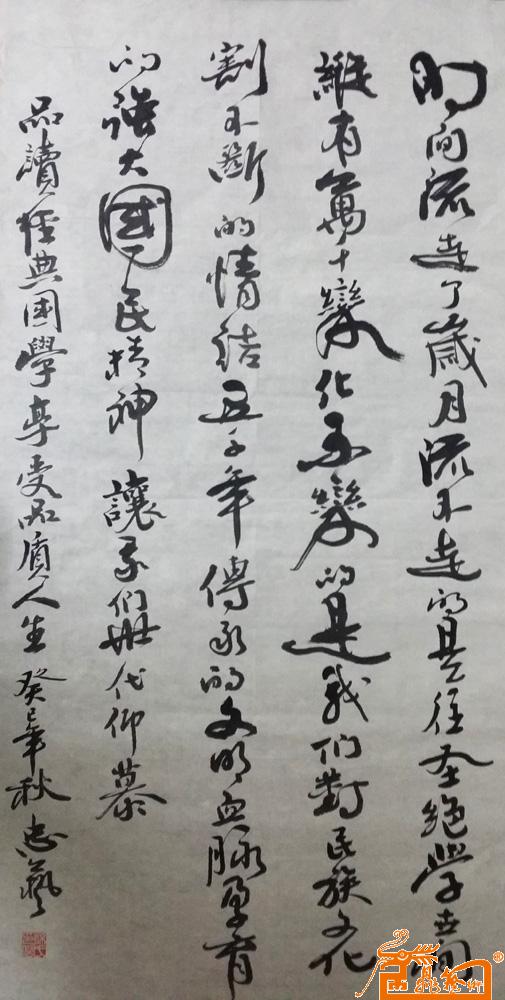 时间流走了歲月流不走的是往圣絕學
縱有萬千變化不變的是我们對民族文化
割不斷的情结五千年傳承的文明血脉孕育
的强大國民精神讓我们世代仰慕
品讀经典国學享受品质人生癸巳年秋忠藝